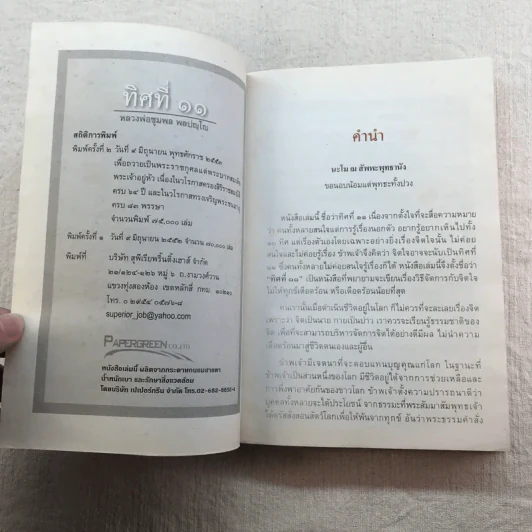 ทิศที่ ๑๑
หลวงพ่อชุมพล พลปญฺโญ
สถิติการพิมพ์
พิมพ์ครั้งที่ ๒ วันที่ ๙ มิถุนายน พุทธศักราช ๒๕๕๓
เพื่อถวายเป็นพระราชกุศลแด่พระบาทสมเด็จ
พระเจ้าอยู่หัว เนื่องในวโรกาสครองสิริราชสมบัติ
ครบ ๖๔ ปี และในวโรกาสทรงเจริญพระชนมายุ
ครบ ๘๓ พรรษา
จำนวนพิมพ์ ๗๕,๐๐๐ เล่ม
พิมพ์ครั้งที่ ๑ วันที่ ๙ มิถุนายน ๒๕๕๒ จำนวน ๗๐,๐๐๐ เล่ม
พิมพ์ที่ บริษัท สุพีเรียพริ้นติ้งเฮาส์ จำกัด
๒๑/๑๒๔-๑๒๖ หมู่ ๖ ถ.งามวงศ์วาน
แขวงทุ่งสองห้อง เขตหลักสี่ กทม ๑๐๒๑๐
โทร. ๐ ๒๙๕๔
superior_job@yahoo.com
PAPERGREEN CO.,LTD.
หนังสือเล่มนี้ ผลิตจากกระดาษถนอมสายตา
น้ำหนักเบา และรักษาสิ่งแวดล้อม
โดยบริษัท เปเปอร์กรีน จำกัด โทร.02-682-
คำนำ
นะโม ณ สัพพะพุทธานัง
ขอนอบน้อมแด่พุทธะทั้งปวง
หนังสือเล่มนี้ ชื่อว่าทิศที่ ๑๑ เนื่องจากตั้งใจที่จะสื่อความหมาย
ว่า คนทั้งหลายสนใจแต่การรู้เรื่องนอกตัว อยากรู้อยากเห็นไปทั้ง
๑๐ ทิศ แต่เรื่องตัวเองโดยเฉพาะอย่างยิ่งเรื่องจิตใจนั้น ไม่ค่อย
สนใจและไม่ค่อยรู้เรื่อง ข้าพเจ้าจึงคิดว่า จิตใจอาจจะนับเป็นทิศที่
๑๑ ซึ่งคนทั้งหลายไม่ค่อยสนใจรู้เรื่องก็ได้ หนังสือเล่มนี้จึงตั้งชื่อว่า
“ทิศที่ ๑๑” เป็นหนังสือที่พยายามจะบอกเรื่องวิธีจัดการกับจิตใจ
ไม่ให้ทุกข์เดือดร้อน หรือเดือดร้อนน้อยที่สุด
คนเรานั้นเมื่อดำเนินชีวิตอยู่ในโลก ก็ไม่ควรที่จะละเลยเรื่องจิต
เพราะว่า จิตเป็นนาย กายเป็นบ่าว เราควรจะเรียนรู้ธรรมชาติของ
จิต เพื่อที่จะสามารถบริหารจัดการจิตได้อย่างดีมีผล ไม่นำความ
เดือดร้อนมาสู่ชีวิตตนเองและผู้อื่น
ข้าพเจ้ามีเจตนาที่จะตอบแทนบุญคุณแก่โลก ในฐานะที่
ข้าพเจ้าเป็นส่วนหนึ่งของโลก มีชีวิตอยู่ได้จากการช่วยเหลือและ
การพึ่งพาอาศัยกันของชาวโลก ข้าพเจ้าตั้งความปรารถนาดีว่า
บุคคลทั้งหลายจะได้ประโยชน์ จากธรรมะที่พระสัมมาสัมพุทธเจ้า
ได้ตรัสสั่งสอนสัตว์โลกเพื่อให้พ้นจากทุกข์ อันว่าพระธรรมคำสั่ง